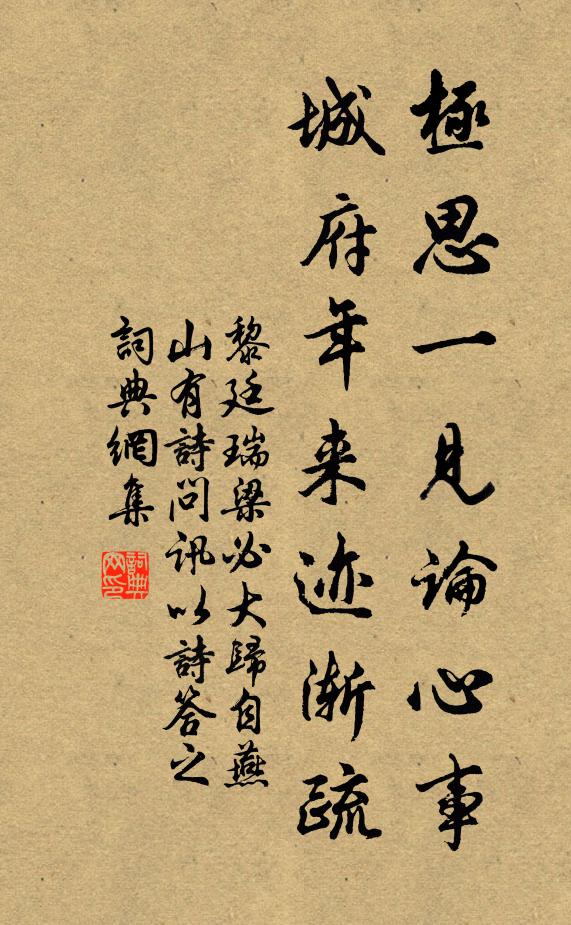 極思一見論心事
城府年来迹漸疏
黎廷瑞梁必大歸自燕
山有詩問訊以詩答之
詞典網集
詞典
网印